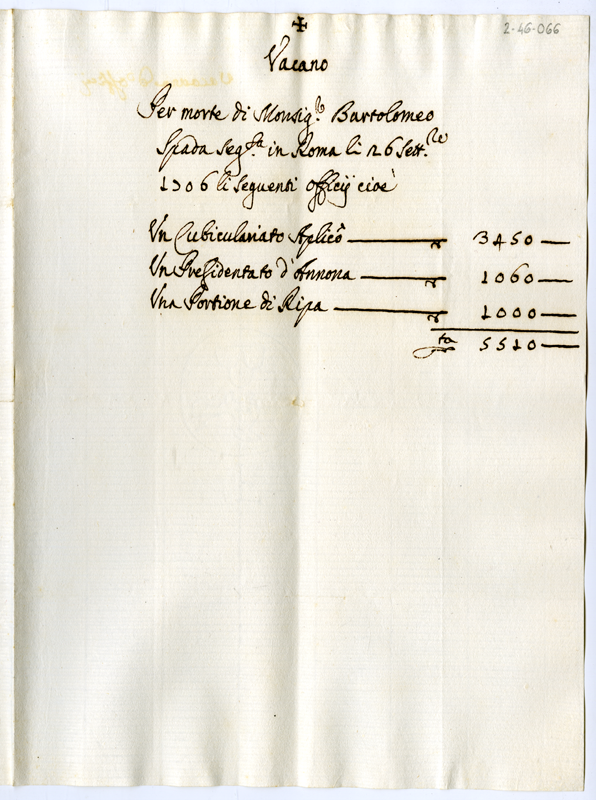 2-46-066
✠
Vacano
Per morte di Monsig.r Bartolomeo
Spada seg.ta in Roma li 26 Sett.re
1706 li seguenti officij cioè
Un Cubiculariato Aplicô — 3450 —
Un Presidentato d'Annona — 1060 —
Una Portione di Ripa — 1000 —
5510 —